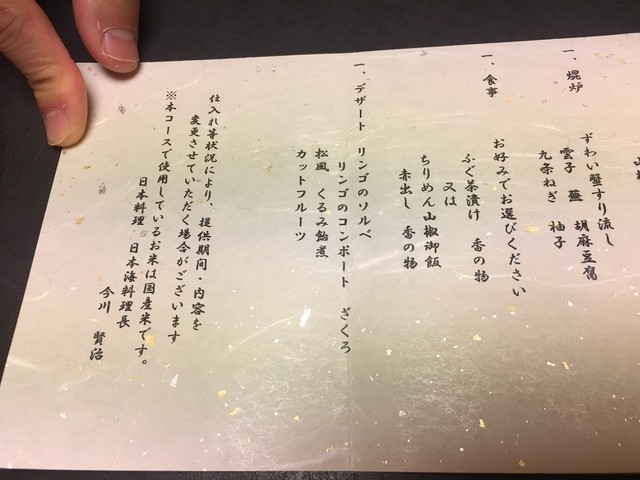 一、焜炉
ずわい蟹すり流し
雲子　蕪　胡麻豆腐
九条ねぎ　柚子
一、食事
お好みでお選びください
ふぐ茶漬け　香の物
又は
ちりめん山椒御飯
赤出し　香の物
一、デザート　リンゴのソルベ
リンゴのコンポート　ざくろ
松風　くるみ飴煮
カットフルーツ
仕入れ等状況により、提供期間・内容を
変更させていただく場合がございます
※本コースで使用しているお米は国産米です。
日本料理　日本海料理長
今川　賢治